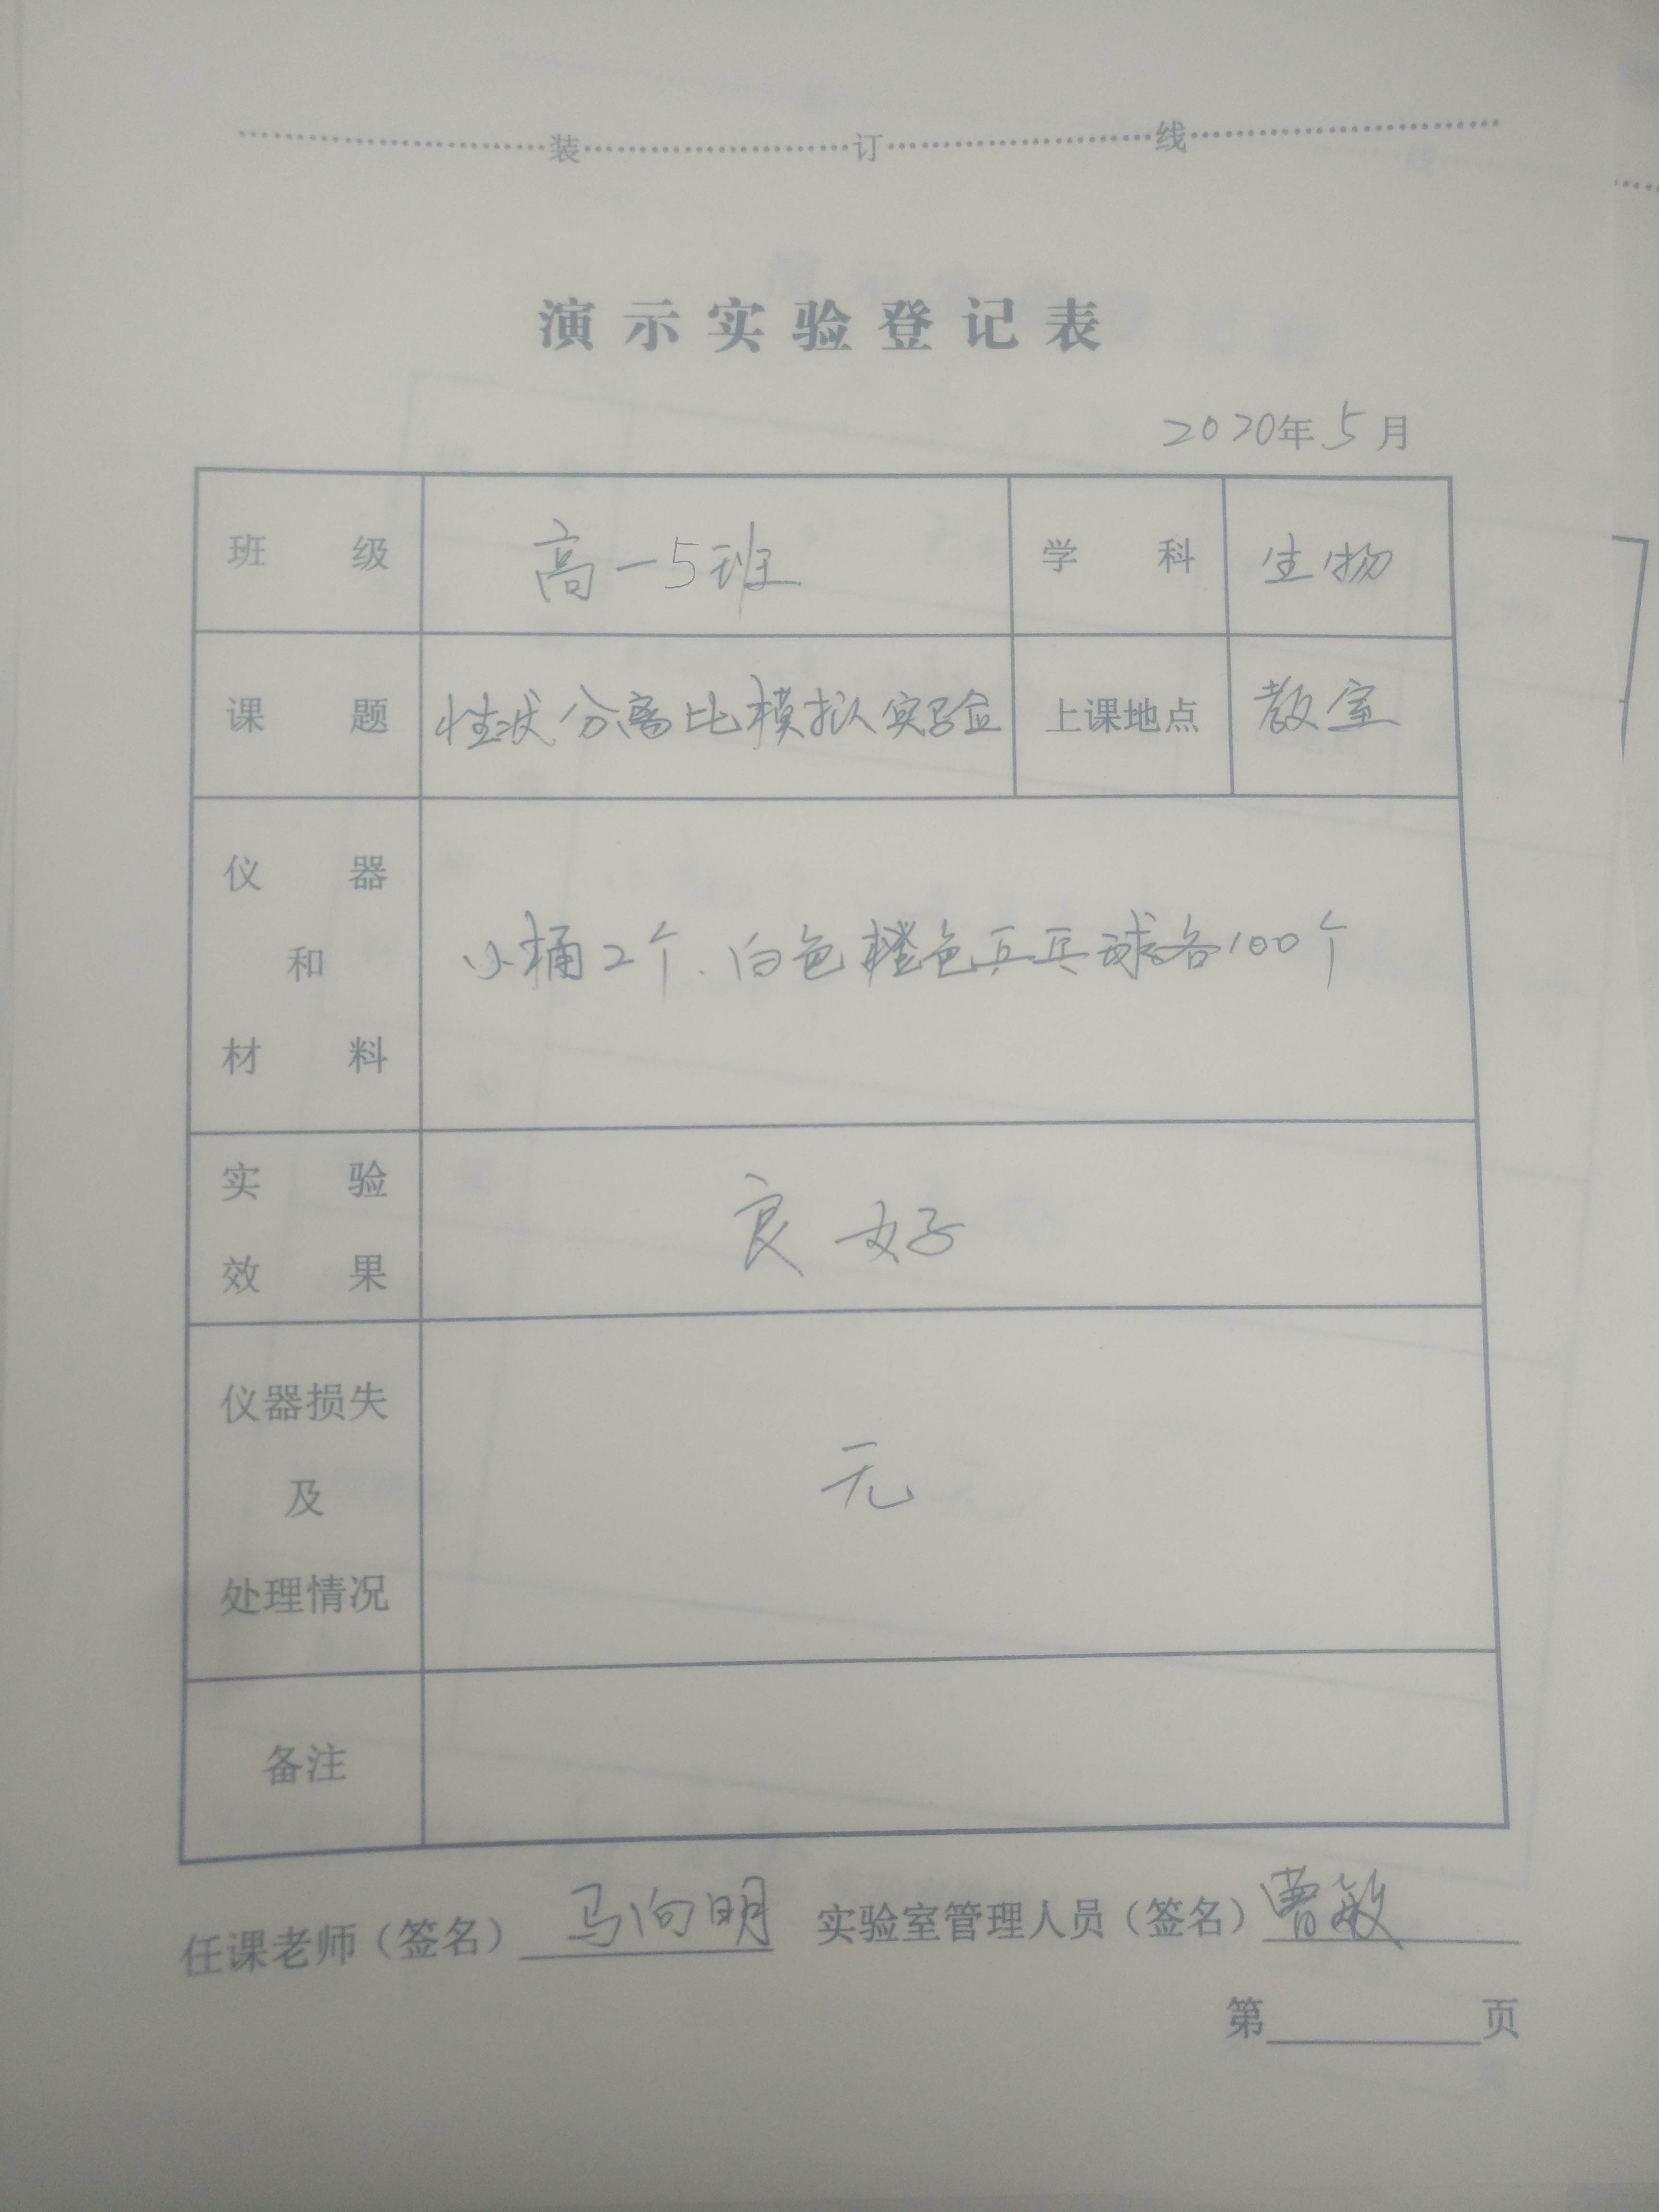 装 订 线
演示实验登记表
2020年5月
班级 高一5班 学科 生物
课题 性状分离比模拟实验 上课地点 教室
仪器
和 小桶2个、白色橙色乒乓球各100个
材料
实验
效果 良好
仪器损失
及 无
处理情况
备注
任课老师（签名） 马向明 实验室管理人员（签名） 曹敏
第 页